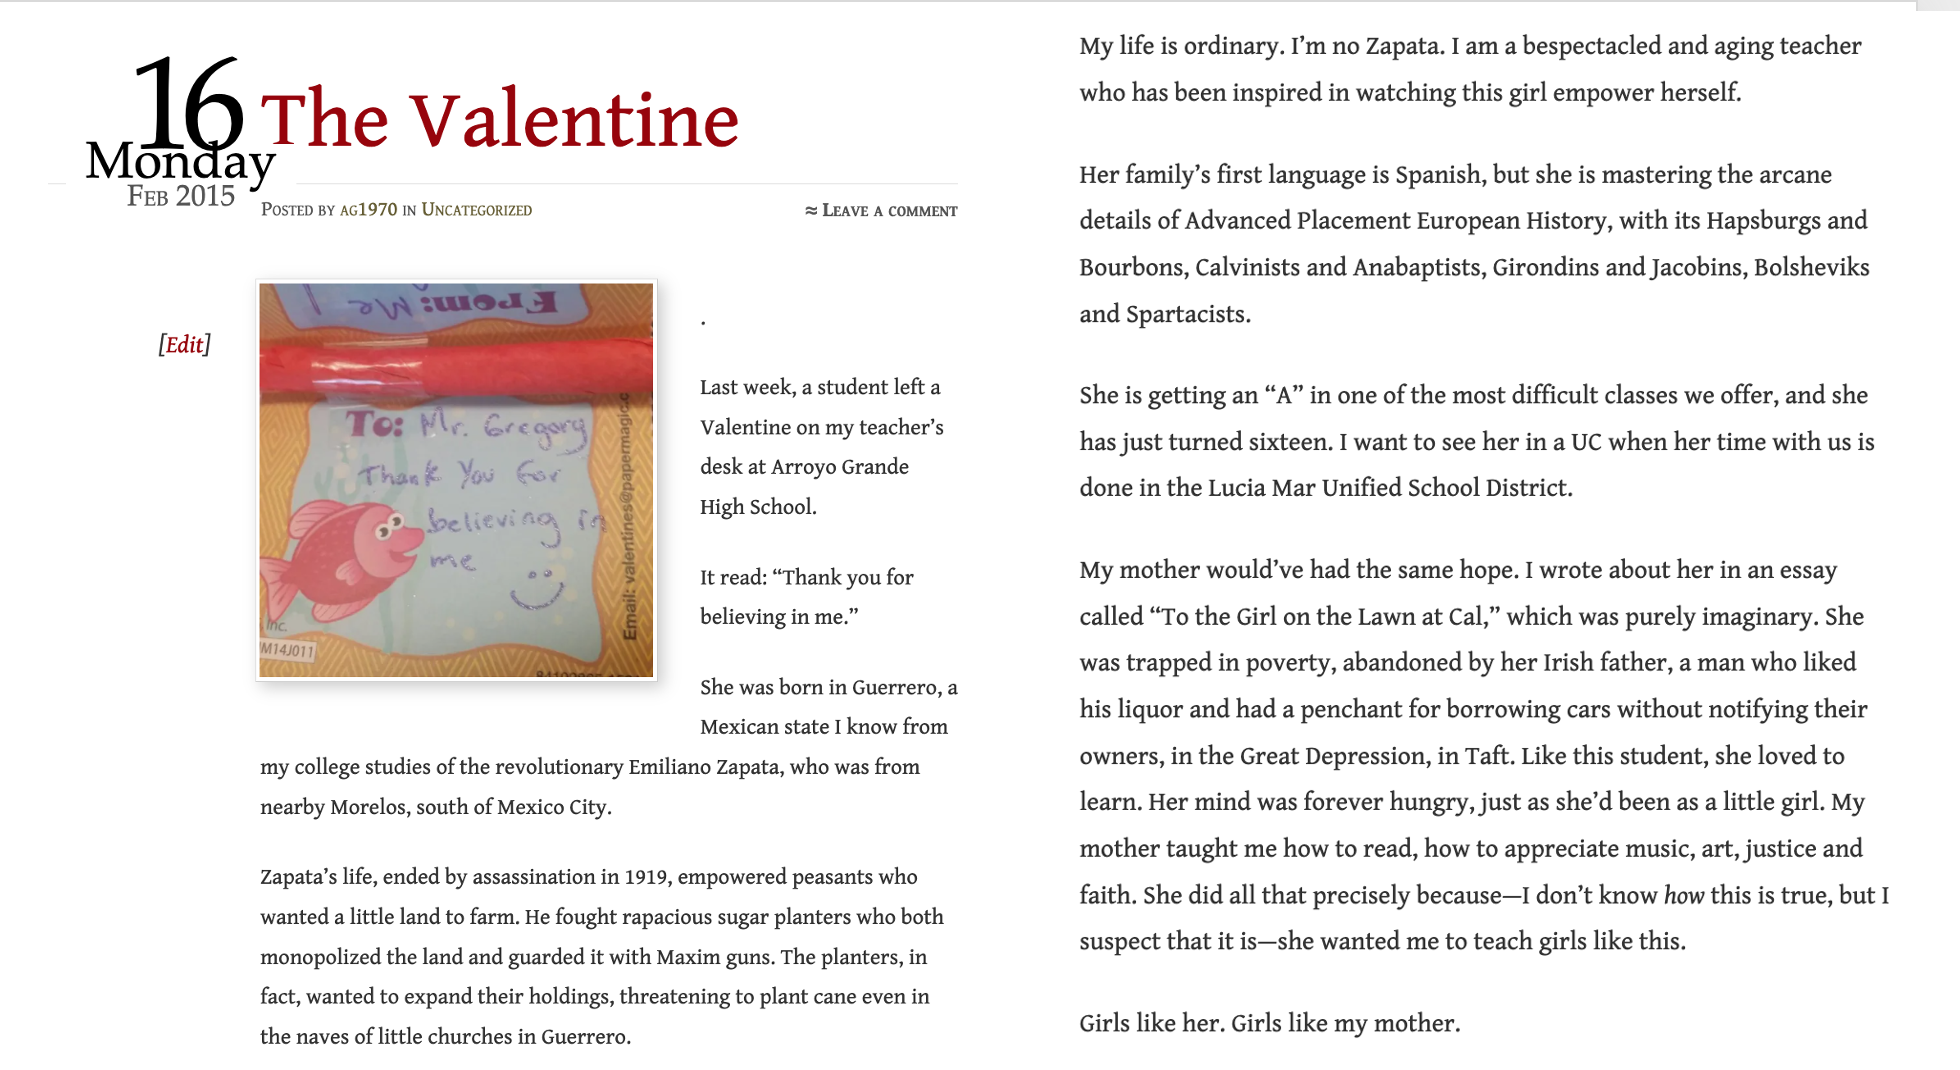 16
Monday
Feb 2015
The Valentine
Posted by ag1970 in Uncategorized
≈ Leave a comment
[Edit]
From: Me
To: Mr. Gregory
Thank You for
believing in
me
Email: valentines@papermagic.c
Inc.
M14J011
.
Last week, a student left a
Valentine on my teacher’s
desk at Arroyo Grande
High School.
It read: “Thank you for
believing in me.”
She was born in Guerrero, a
Mexican state I know from
my college studies of the revolutionary Emiliano Zapata, who was from
nearby Morelos, south of Mexico City.
Zapata’s life, ended by assassination in 1919, empowered peasants who
wanted a little land to farm. He fought rapacious sugar planters who both
monopolized the land and guarded it with Maxim guns. The planters, in
fact, wanted to expand their holdings, threatening to plant cane even in
the naves of little churches in Guerrero.
My life is ordinary. I’m no Zapata. I am a bespectacled and aging teacher
who has been inspired in watching this girl empower herself.
Her family’s first language is Spanish, but she is mastering the arcane
details of Advanced Placement European History, with its Hapsburgs and
Bourbons, Calvinists and Anabaptists, Girondins and Jacobins, Bolsheviks
and Spartacists.
She is getting an “A” in one of the most difficult classes we offer, and she
has just turned sixteen. I want to see her in a UC when her time with us is
done in the Lucia Mar Unified School District.
My mother would’ve had the same hope. I wrote about her in an essay
called “To the Girl on the Lawn at Cal,” which was purely imaginary. She
was trapped in poverty, abandoned by her Irish father, a man who liked
his liquor and had a penchant for borrowing cars without notifying their
owners, in the Great Depression, in Taft. Like this student, she loved to
learn. Her mind was forever hungry, just as she’d been as a little girl. My
mother taught me how to read, how to appreciate music, art, justice and
faith. She did all that precisely because—I don’t know how this is true, but I
suspect that it is—she wanted me to teach girls like this.
Girls like her. Girls like my mother.